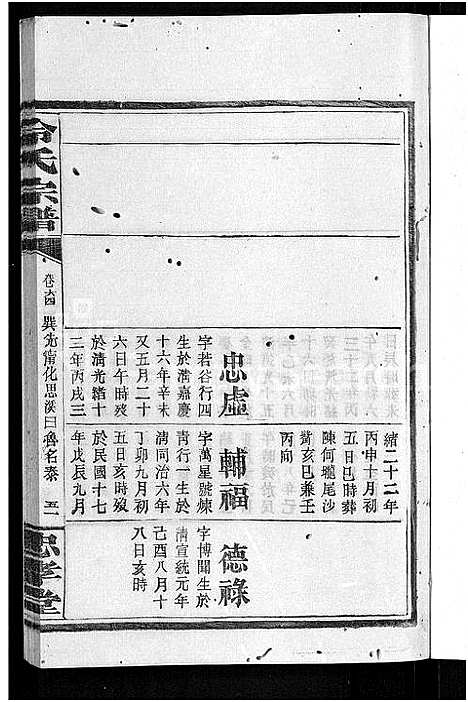 緒二十二年
丙申十月初
五日巳時葬
陳何壠尾沙
觜亥巳兼壬
丙向
忠虛
字若谷行四
生於清嘉慶
十六年辛未
又五月二十
六日午時歿
於清光緒十
三年丙戌三
輔福
字萬星號棟
青行一生於
清同治六年
丁卯九月初
五日亥時歿
於民國十七
年戊辰九月
德祿
字博聞生於
清宣統元年
己酉八月十
八日亥時
氏宗譜
巽
化思溪曰魯名泰
五
忠孝堂